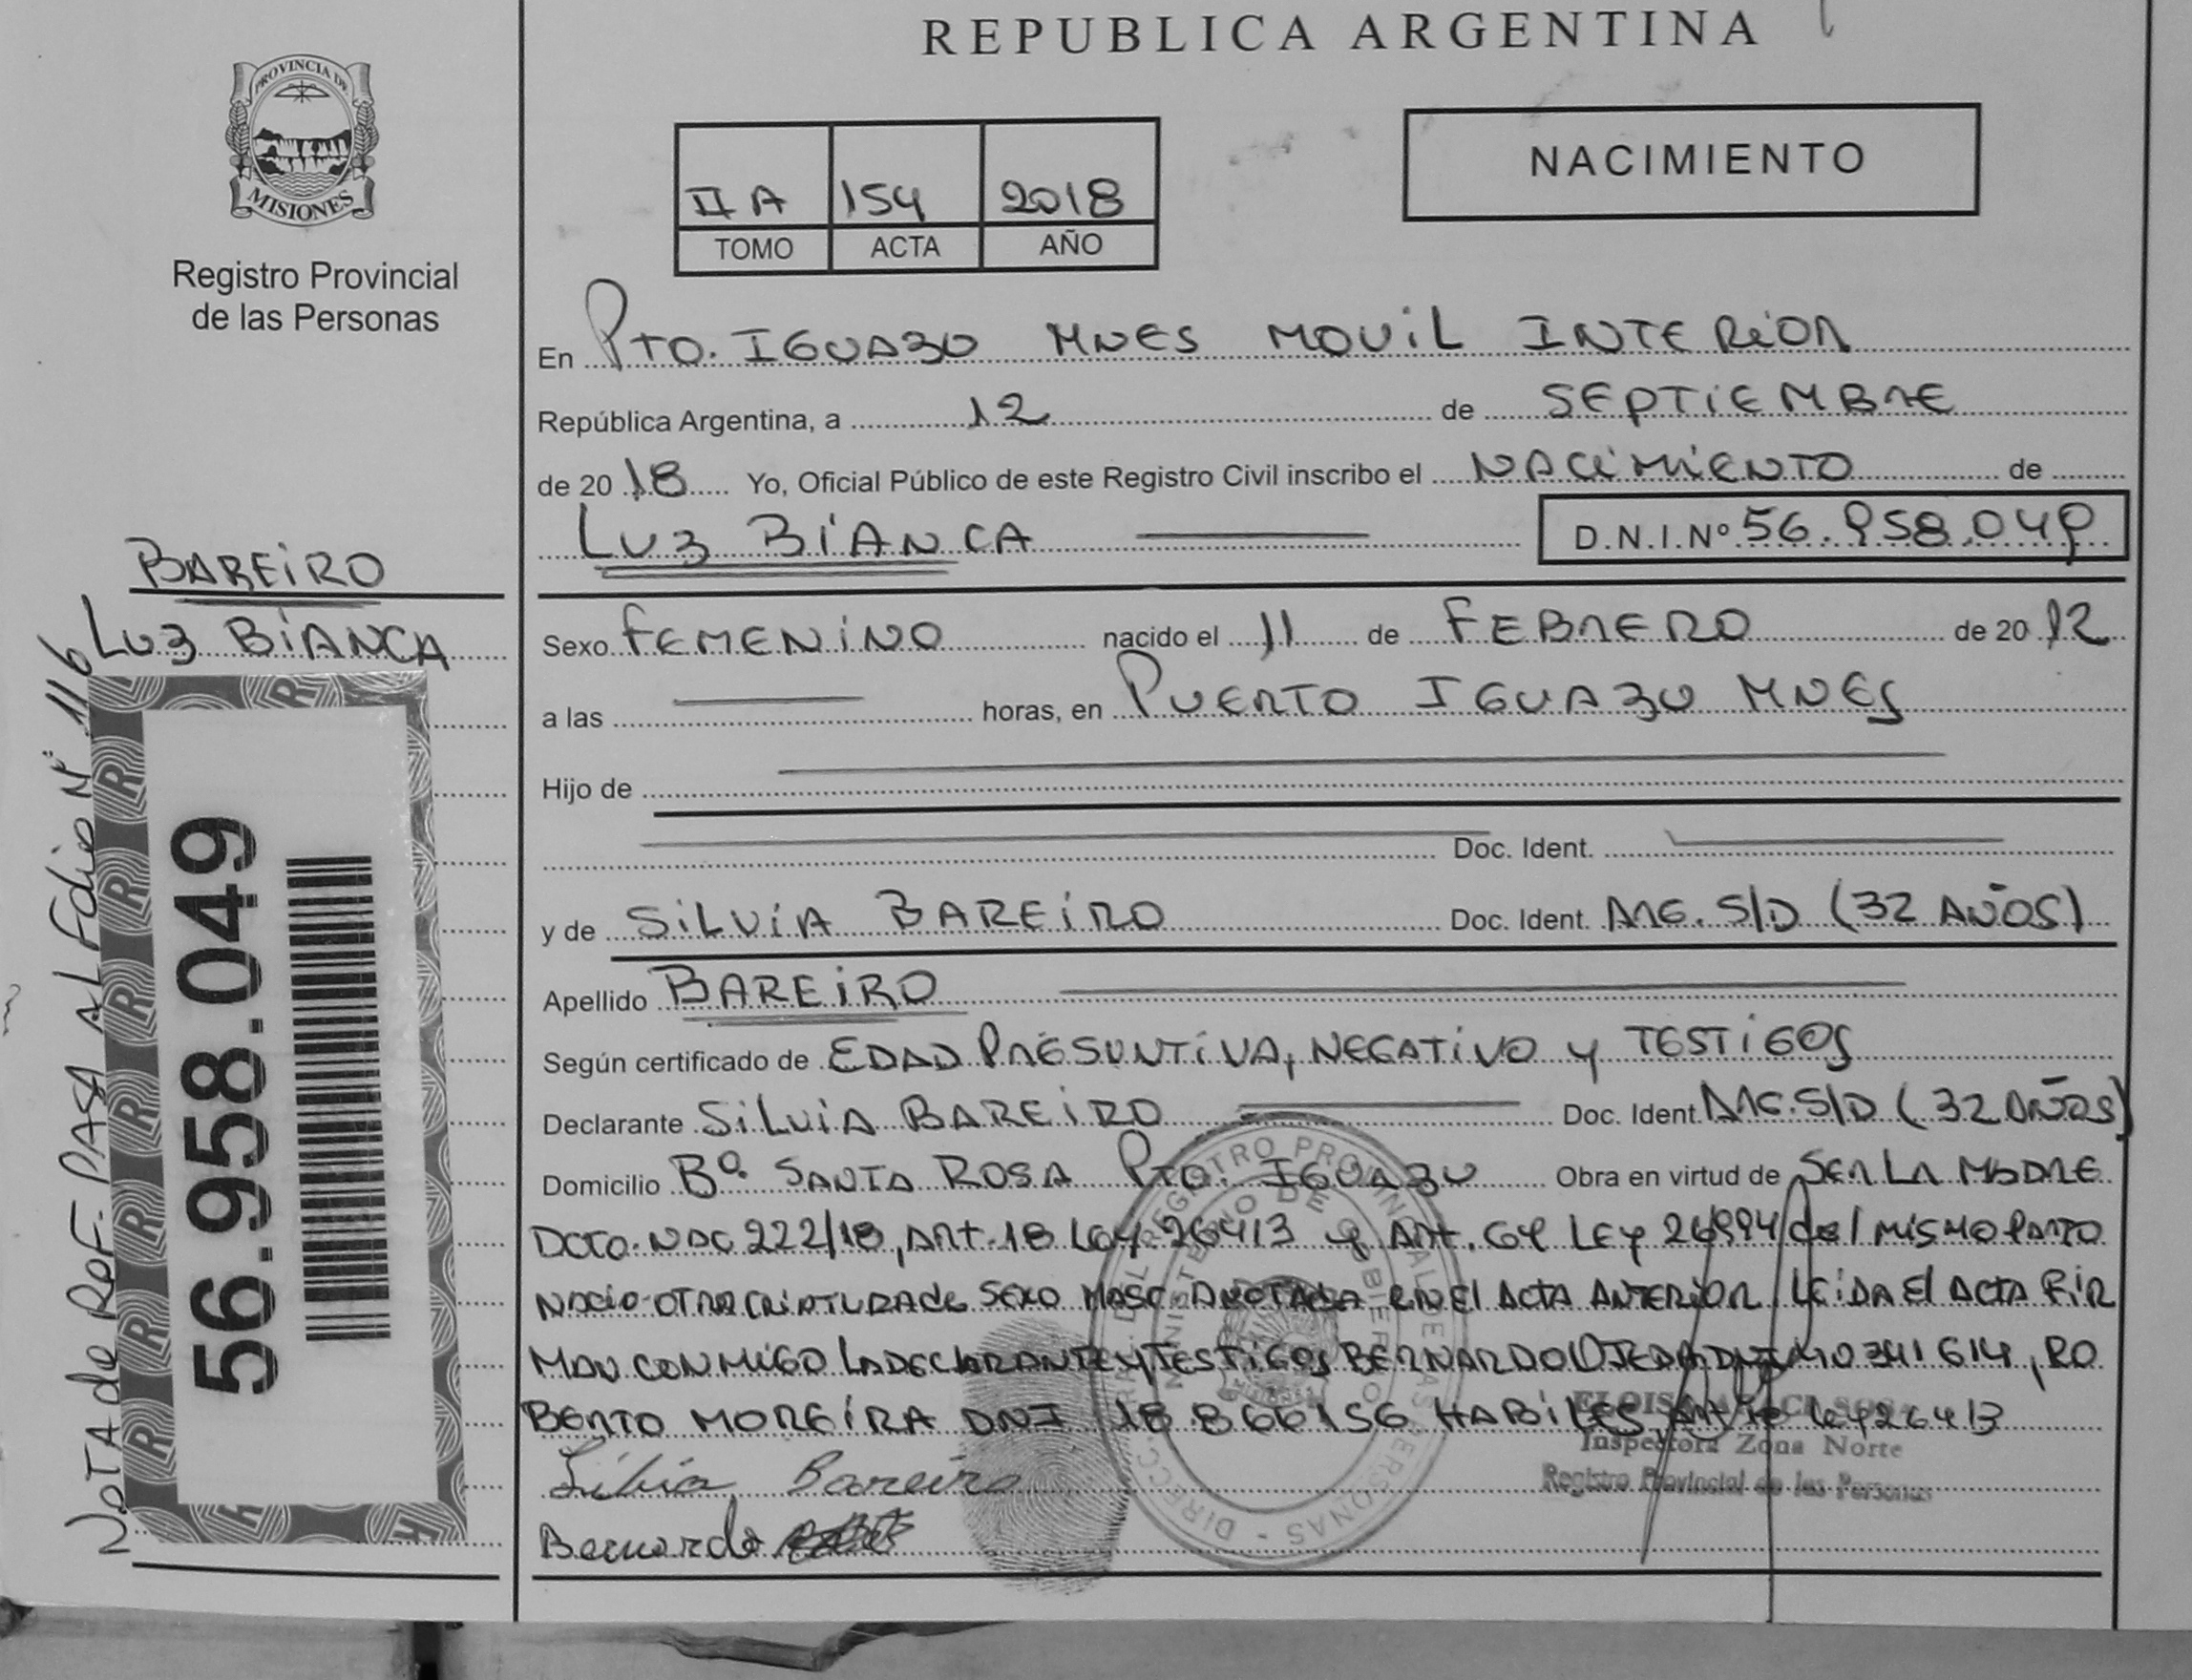 REPUBLICA ARGENTINA
PROVINCIA DE
MISIONES
Registro Provincial
de las Personas
II A 154 2018
TOMO ACTA AÑO
NACIMIENTO
En Pto. IGUAZU MNES MOVIL INTERIOR
República Argentina, a 12 de SEPTIEMBRE
de 2018 Yo, Oficial Público de este Registro Civil inscribo el NACIMIENTO de
LUZ BIANCA D.N.I.Nº 56.958.049
BAREIRO
LUZ BIANCA
Sexo FEMENINO nacido el 11 de FEBRERO de 2012
a las horas, en PUERTO IGUAZU MNES
Hijo de
Doc. Ident.
y de SILVIA BAREIRO Doc. Ident. ARG. S/D (32 AÑOS)
Apellido BAREIRO
Según certificado de EDAD PRESUNTIVA, NEGATIVO y TESTIGOS
Declarante SILVIA BAREIRO Doc. Ident. ARG. S/D (32 AÑOS)
Domicilio Bº SANTA ROSA Pto. IGUAZU Obra en virtud de SER LA MADRE
DCTO. NAC 222/18, ART. 18 LEY 26413 y ART. 64 LEY 26994 del MISMO PARTO
NACIO OTRA CRIATURA de SEXO MASC ANOTADA EN El ACTA ANTERIOR LEIDA El ACTA FIR
MAN CONMIGO LA DECLARANTE y TESTIGOS BERNARDO OJEDA DNI 40341614, RO
BERTO MOREIRA DNI 18866156 HABILES Ley 26413
Silvia Bareiro
Bernardo
ELOISA
Inspectora Zona Norte
Registro Provincial de las Personas
56.958.049
NOTA de REF. PASA AL Folio Nº 116